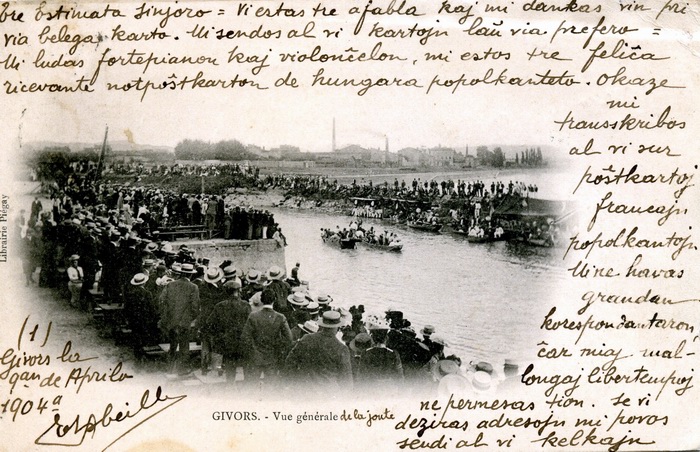 Tre Estimata Sinjoro = Vi estas tre afabla kaj mi dankas vin pri
via belega karto. Mi sendos al vi kartojn laŭ via prefero =
Mi ludas fortepianon kaj violonĉelon, mi estos tre feliĉa
ricevante notpoŝtkarton de hungara popolkanteto. Okaze
mi
transskribos
al vi sur
poŝtkartoj
francajn
popolkantojn
Mi ne havas
grandan
korespondantaron,
ĉar miaj mal-
longaj libertempoj
ne permesas tion. Se vi
deziras adresojn mi povos
sendi al vi kelkajn
Librairie Piégay
(1)
Givors la
9an de Aprilo
1904a
GIVORS. - Vue générale de la joute